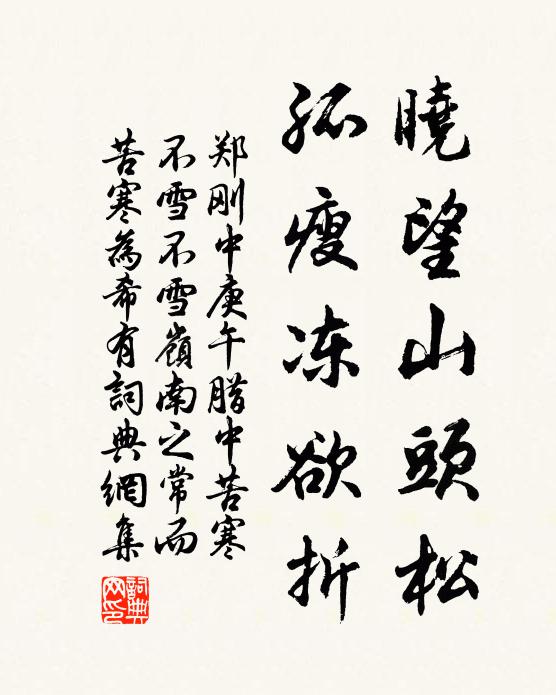 曉望山頭松
孤瘦冻欲折
郑刚中庚午腊中苦寒
不雪不雪嶺南之常而
苦寒為希有詞典網集
詞典
网印